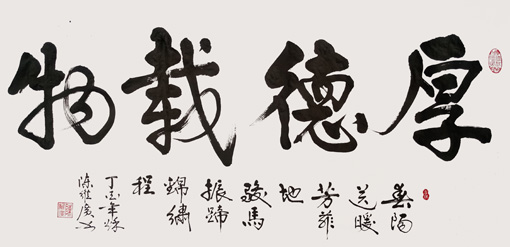 厚德載物
春陽
送暖
芳菲
地
駿馬
振蹄
錦繡
程
丁酉年秋